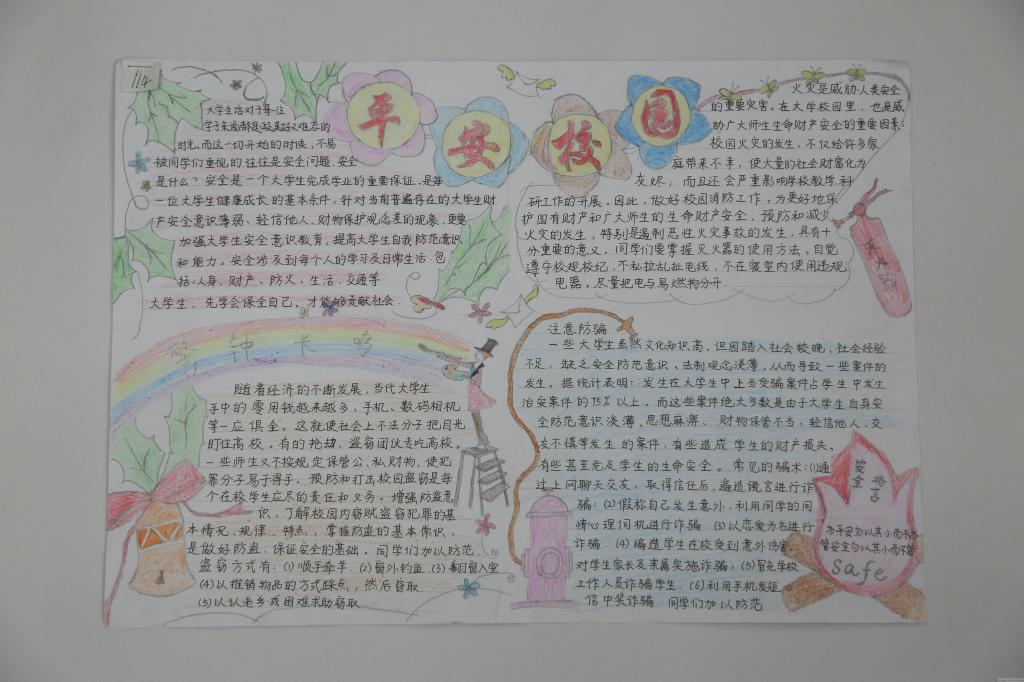 114
平安校园
大学生活对于每一位
学子来说都是最美好又难忘的
时光。而这一切开始的时候,不易
被同学们重视的往往是安全问题。安全
是什么?安全是一个大学生完成学业的重要保证,是每
一位大学生健康成长的基本条件,针对当前普遍存在的大学生财
产安全意识薄弱、轻信他人、财物保护观念差的现象,更要
加强大学生安全意识教育,提高大学生自我防范意识
和能力。安全涉及到每个人的学习及日常生活、包
括:人身、财产、防火、生活、交通等
大学生,先学会保全自己,才能够贡献社会
火灾是威胁人类安全
的重要灾害。在大学校园里,也是威
胁广大师生生命财产安全的重要因素;
校园火灾的发生,不仅给许多家
庭带来不幸,使大量的社会财富化为
灰烬,而且还会严重影响学校教学、科
研工作的开展。因此,做好校园消防工作,为更好地保
护国有财产和广大师生的生命财产安全、预防和减少
火灾的发生,特别是遏制恶性火灾事故的发生,具有十
分重要的意义。同学们要掌握灭火器的使用方法,自觉
遵守校规校纪,不私拉乱扯电线,不在寝室内使用违规
电器,尽量把电与易燃物分开
灭火器
警钟长鸣
随着经济的不断发展,当代大学生
手中的零用钱越来越多,手机、数码相机
等一应俱全。这就使社会上不法分子把目光
盯住高校。有的抢劫,盗窃团伙专吃高校。
一些师生又不按规定保管公、私财物,使犯
罪分子易于得手,预防和打击校园盗窃是每
个在校学生应尽的责任和义务,增强防盗意
识,了解校园内窃贼盗窃犯罪的基
本情况、规律、特点,掌握防盗的基本常识,
是做好防盗、保证安全的基础。同学们加以防范
盗窃方式有:(1)顺手牵羊 (2)窗外钓鱼 (3)翻窗入室
(4)以推销物品的方式踩点,然后窃取
(5)以认老乡或困难求助窃取
注意防骗
一些大学生虽然文化知识高,但因踏入社会较晚,社会经验
不足,缺乏安全防范意识、法制观念淡薄,从而导致一些案件的
发生。据统计表明:发生在大学生中上当受骗案件占学生中发生
治安案件的75%以上。而这些案件绝大多数是由于大学生自身安
全防范意识淡薄、思想麻痹、财物保管不当,轻信他人、交
友不慎等发生的案件,有些造成学生的财产损失,
有些甚至危及学生的生命安全。常见的骗术:(1)通
过上网聊天交友,取得信任后,编造谎言进行诈
骗:(2)假称自己发生意外,利用同学的同
情心理伺机进行诈骗 (3)以恋爱为名进行
诈骗 (4)编造学生在校受到意外伤害
对学生家长及亲属实施诈骗;(5)冒充学校
工作人员诈骗学生 (6)利用手机发短
信中奖诈骗,同学们加以防范
安全
格言
为平安勿以其小而不
管安全勿以其小而不管
safe